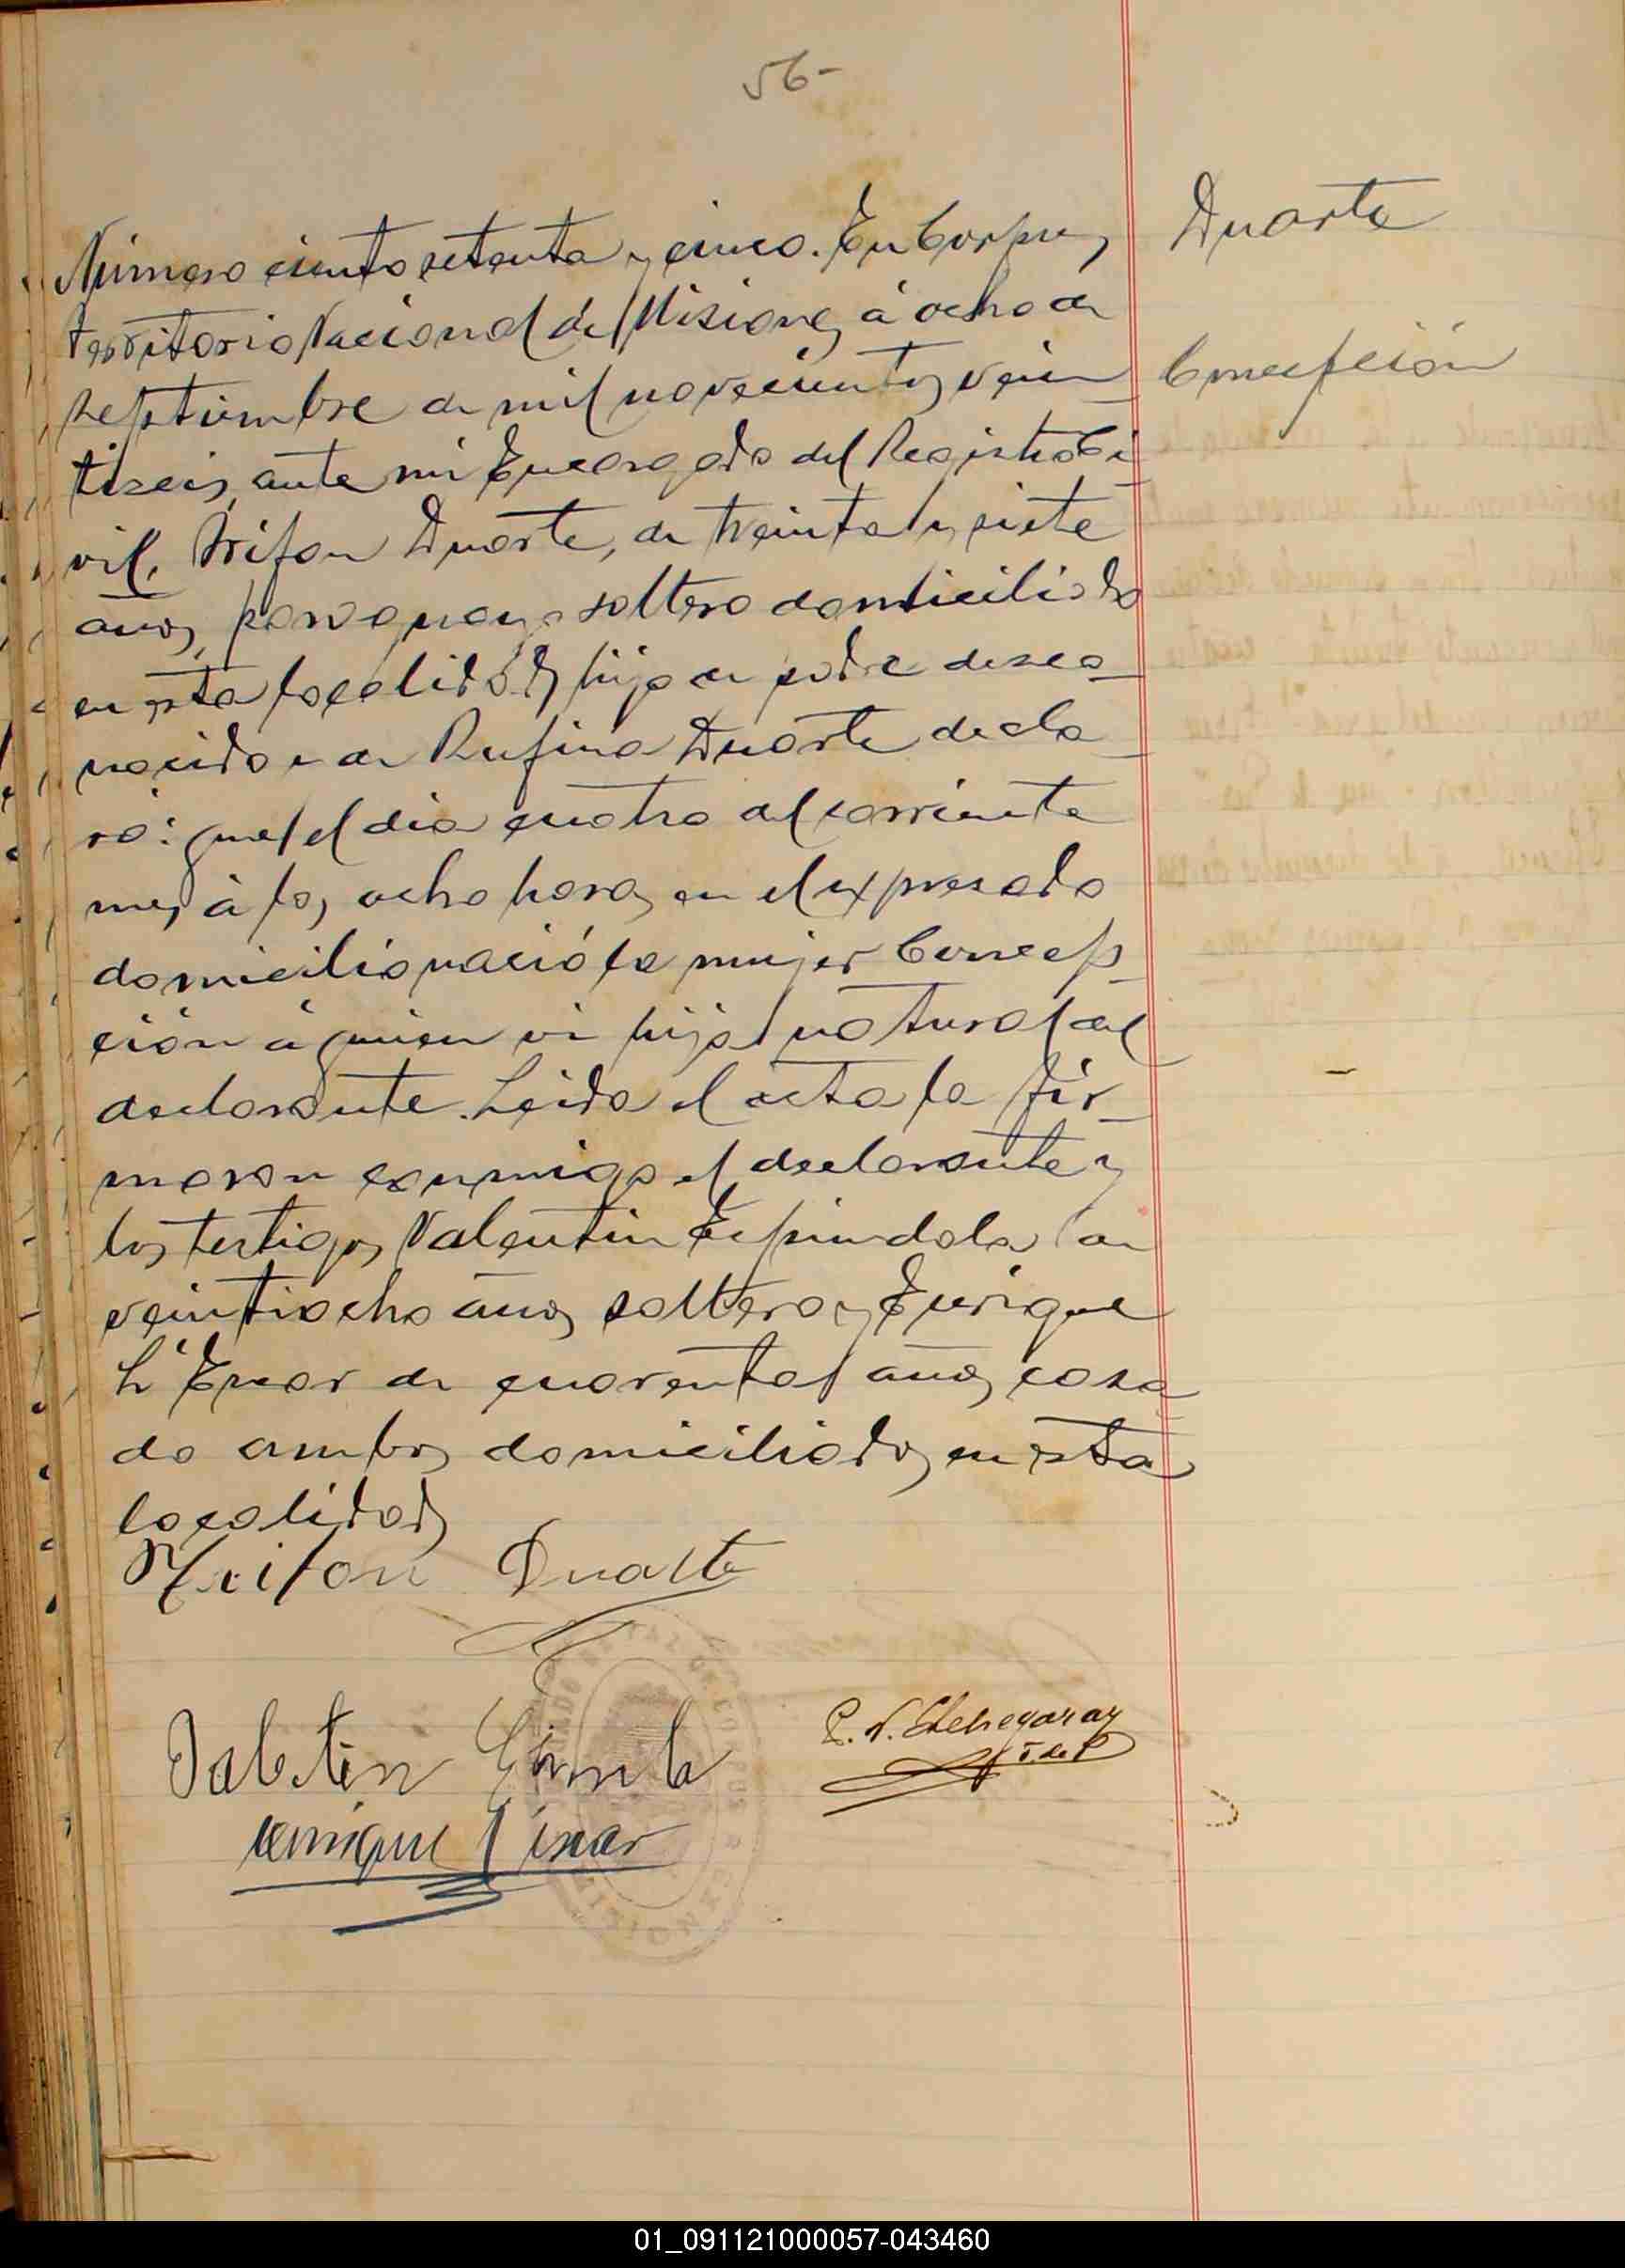 56-
Duarte
Concepción
Número ciento setenta y cinco. En Corpus,
territorio Nacional de Misiones, á ocho de
septiembre de mil novecientos vein
tiseis, ante mi Encargado del Registro Ci
vil, Trifon Duarte, de treinta y siete
años, paraguayo soltero domiciliado
en esta localidad, hijo de padre desco-
nocido y de Rufina Duarte decla-
ró: que el dia cuatro del corriente
mes á las ocho horas en el expresado
domicilio nació la mujer Concep-
ción á quien vi hija natural del
declarante. Leida el acta la fir-
maron conmigo el declarante y
los testigos Valentin Espindola de
veintiocho años soltero y Enrique
de cuarenta años casa
do ambos domiciliados en esta
localidad
Trifon Duarte
E. N. Etchegaray
J. de P
Enrique
01_091121000057-043460